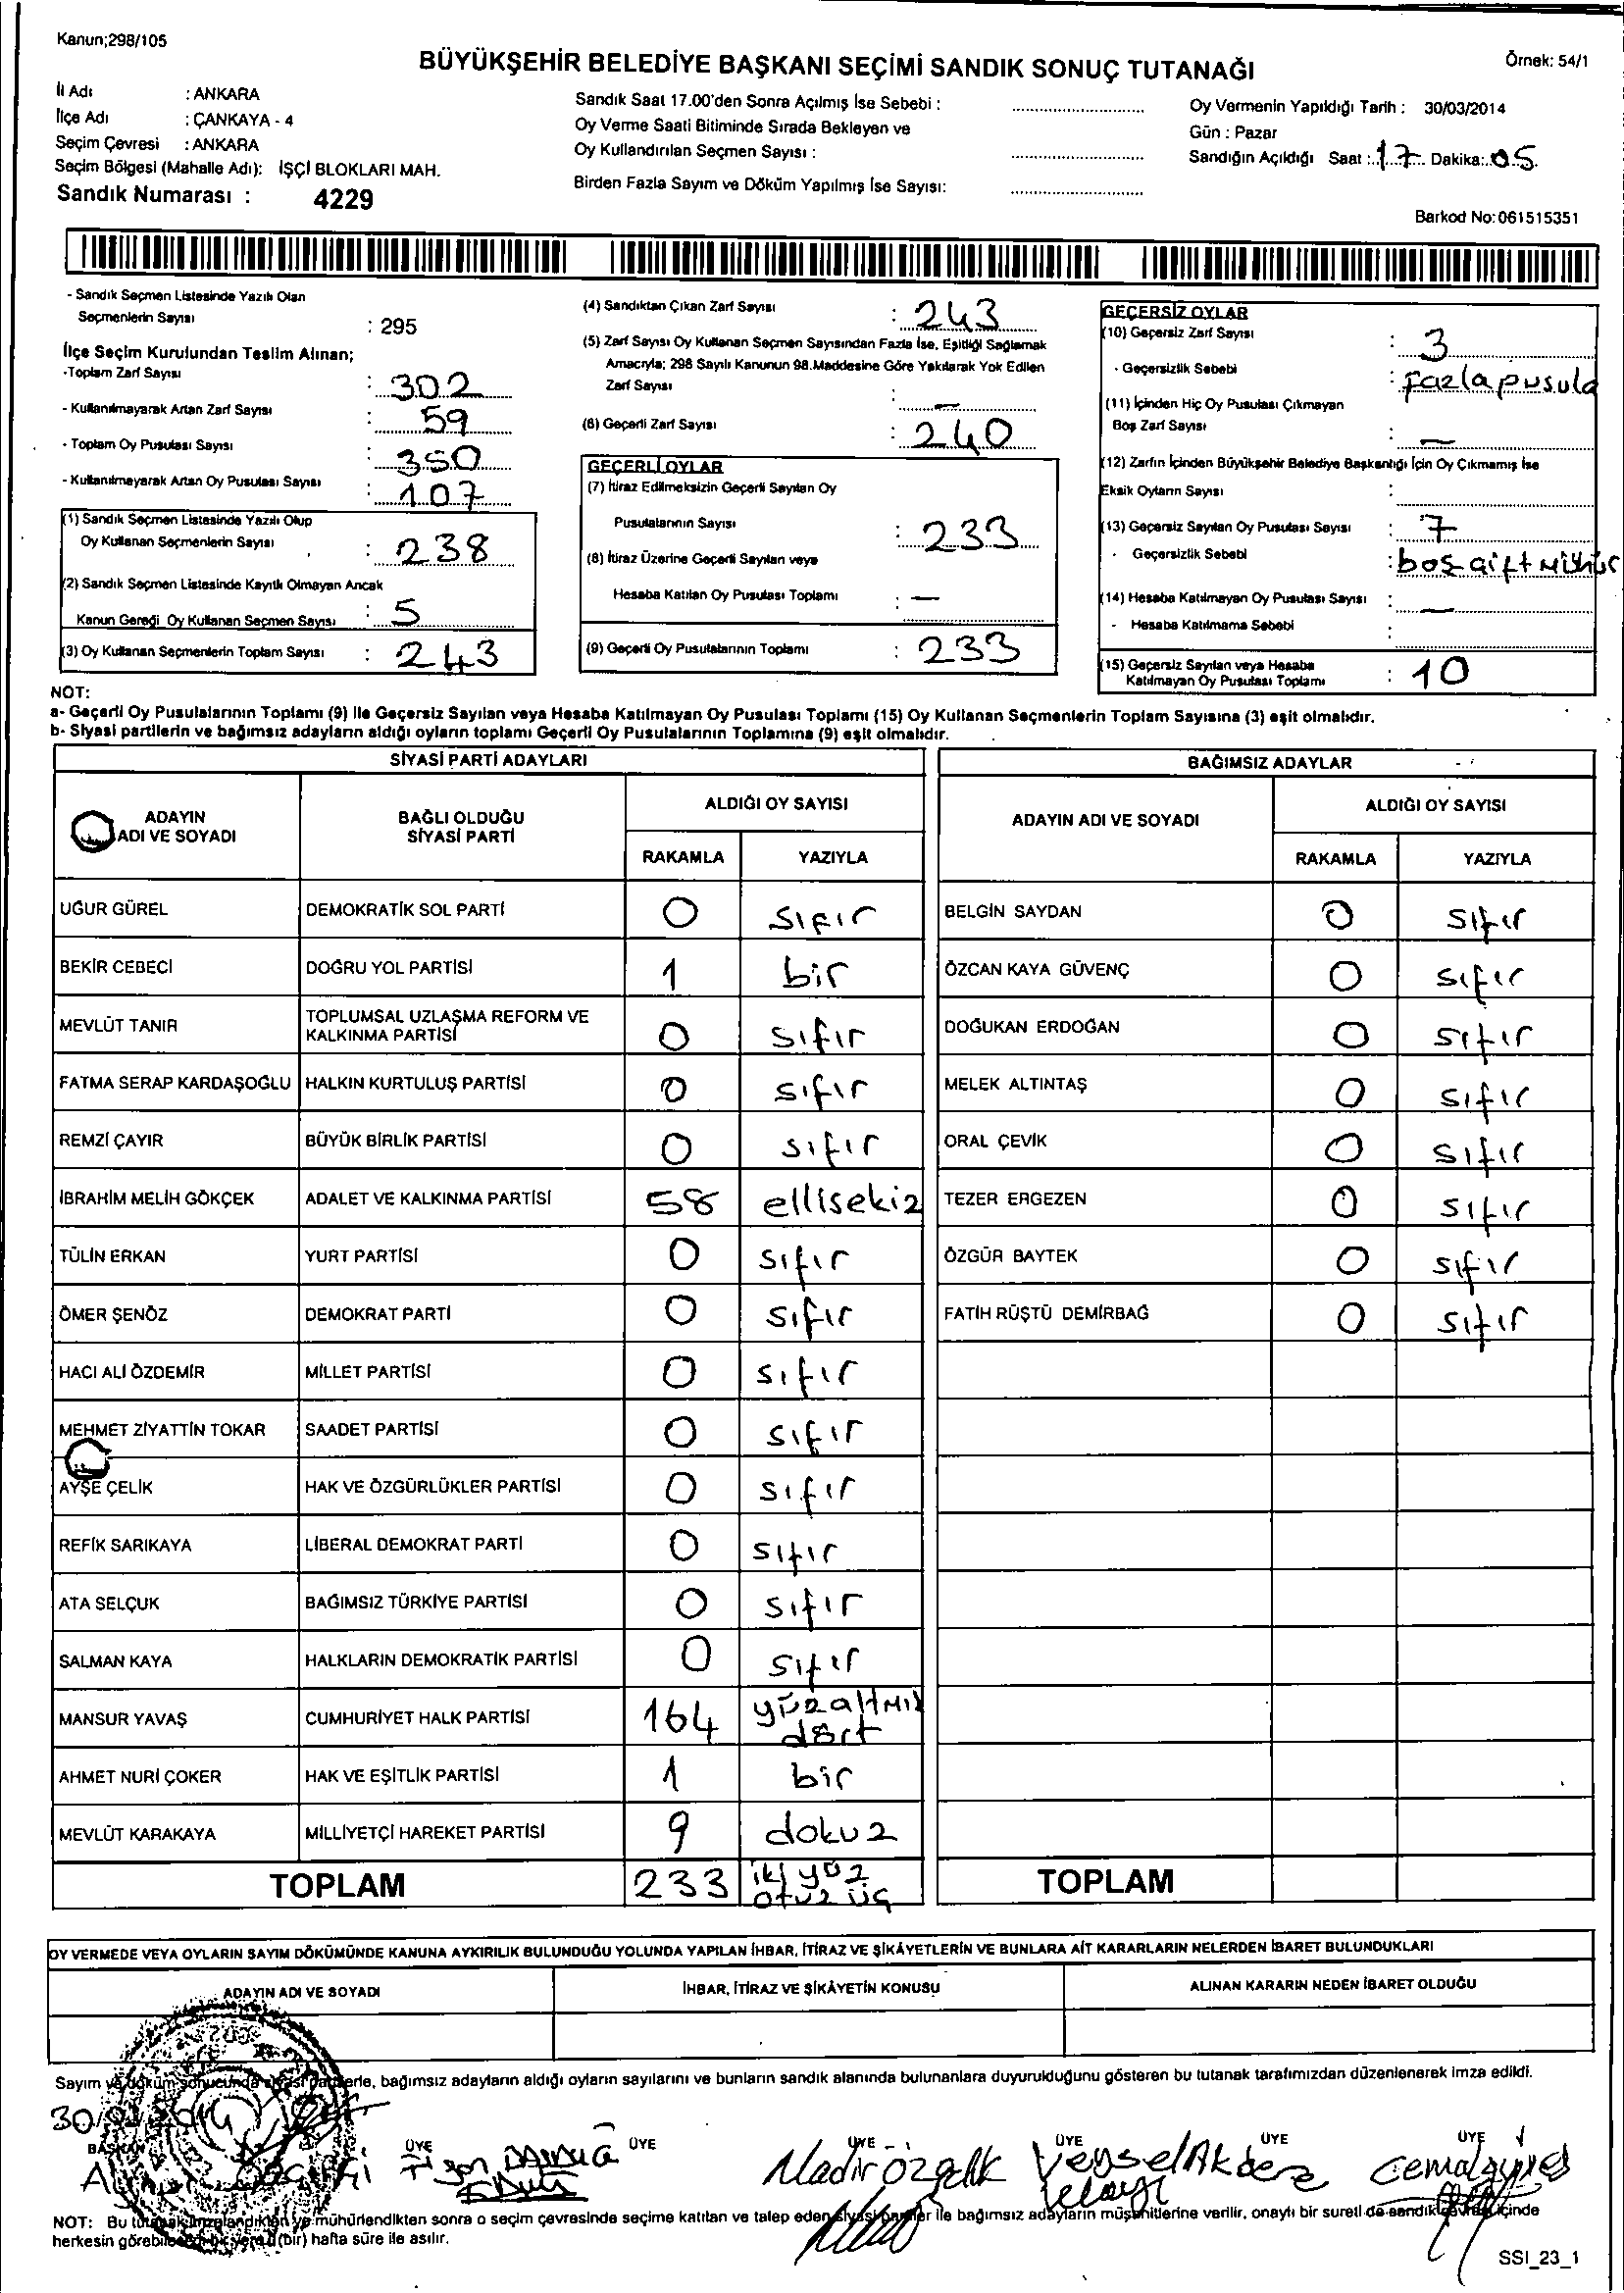 Kanun;298/105
BÜYÜKŞEHİR BELEDİYE BAŞKANI SEÇİMİ SANDIK SONUÇ TUTANAĞI
Örnek: 54/1
İl Adı : ANKARA
İlçe Adı : ÇANKAYA - 4
Seçim Çevresi : ANKARA
Seçim Bölgesi (Mahalle Adı): İŞÇİ BLOKLARI MAH.
Sandık Numarası : 4229
Sandık Saat 17.00'den Sonra Açılmış İse Sebebi :
Oy Verme Saati Bitiminde Sırada Bekleyen ve
Oy Kullandırılan Seçmen Sayısı :
Birden Fazla Sayım ve Döküm Yapılmış İse Sayısı:
Oy Vermenin Yapıldığı Tarih : 30/03/2014
Gün : Pazar
Sandığın Açıldığı Saat : 17 Dakika: 05
Barkod No: 061515351
- Sandık Seçmen Listesinde Yazılı Olan
Seçmenlerin Sayısı : 295
İlçe Seçim Kurulundan Teslim Alınan;
-Toplam Zarf Sayısı : 302
- Kullanılmayarak Artan Zarf Sayısı : 59
- Toplam Oy Pusulası Sayısı : 350
- Kullanılmayarak Artan Oy Pusulası Sayısı : 107
(1) Sandık Seçmen Listesinde Yazılı Olup
Oy Kullanan Seçmenlerin Sayısı : 238
(2) Sandık Seçmen Listesinde Kayıtlı Olmayan Ancak
Kanun Gereği Oy Kullanan Seçmen Sayısı : 5
(3) Oy Kullanan Seçmenlerin Toplam Sayısı : 243
(4) Sandıktan Çıkan Zarf Sayısı : 243
(5) Zarf Sayısı Oy Kullanan Seçmen Sayısından Fazla İse, Eşitliği Sağlamak
Amacıyla; 298 Sayılı Kanunun 98.Maddesine Göre Yakılarak Yok Edilen
Zarf Sayısı : —
(6) Geçerli Zarf Sayısı : 240
GEÇERLİ OYLAR
(7) İtiraz Edilmeksizin Geçerli Sayılan Oy
Pusulalarının Sayısı : 233
(8) İtiraz Üzerine Geçerli Sayılan veya
Hesaba Katılan Oy Pusulası Toplamı : —
(9) Geçerli Oy Pusulalarının Toplamı : 233
GEÇERSİZ OYLAR
(10) Geçersiz Zarf Sayısı : 3
- Geçersizlik Sebebi : Fazla pusula
(11) İçinden Hiç Oy Pusulası Çıkmayan
Boş Zarf Sayısı : —
(12) Zarfın İçinden Büyükşehir Belediye Başkanlığı İçin Oy Çıkmamış İse
Eksik Oyların Sayısı :
(13) Geçersiz Sayılan Oy Pusulası Sayısı : 7
- Geçersizlik Sebebi : boş çift Mühür
(14) Hesaba Katılmayan Oy Pusulası Sayısı : —
- Hesaba Katılmama Sebebi :
(15) Geçersiz Sayılan veya Hesaba
Katılmayan Oy Pusulası Toplamı : 10
NOT:
a- Geçerli Oy Pusulalarının Toplamı (9) ile Geçersiz Sayılan veya Hesaba Katılmayan Oy Pusulası Toplamı (15) Oy Kullanan Seçmenlerin Toplam Sayısına (3) eşit olmalıdır.
b- Siyasi partilerin ve bağımsız adayların aldığı oyların toplamı Geçerli Oy Pusulalarının Toplamına (9) eşit olmalıdır.
SİYASİ PARTİ ADAYLARI
ADAYIN ADI VE SOYADI BAĞLI OLDUĞU SİYASİ PARTİ ALDIĞI OY SAYISI
RAKAMLA YAZIYLA
UĞUR GÜREL DEMOKRATİK SOL PARTİ 0 sıfır
BEKİR CEBECİ DOĞRU YOL PARTİSİ 1 bir
MEVLÜT TANIR TOPLUMSAL UZLAŞMA REFORM VE KALKINMA PARTİSİ 0 sıfır
FATMA SERAP KARDAŞOĞLU HALKIN KURTULUŞ PARTİSİ 0 sıfır
REMZİ ÇAYIR BÜYÜK BİRLİK PARTİSİ 0 sıfır
İBRAHİM MELİH GÖKÇEK ADALET VE KALKINMA PARTİSİ 58 ellisekiz
TÜLİN ERKAN YURT PARTİSİ 0 sıfır
ÖMER ŞENÖZ DEMOKRAT PARTİ 0 sıfır
HACI ALİ ÖZDEMİR MİLLET PARTİSİ 0 sıfır
MEHMET ZİYATTİN TOKAR SAADET PARTİSİ 0 sıfır
AYŞE ÇELİK HAK VE ÖZGÜRLÜKLER PARTİSİ 0 sıfır
REFİK SARIKAYA LİBERAL DEMOKRAT PARTİ 0 sıfır
ATA SELÇUK BAĞIMSIZ TÜRKİYE PARTİSİ 0 sıfır
SALMAN KAYA HALKLARIN DEMOKRATİK PARTİSİ 0 sıfır
MANSUR YAVAŞ CUMHURİYET HALK PARTİSİ 164 yüzaltmış dört
AHMET NURİ ÇOKER HAK VE EŞİTLİK PARTİSİ 1 bir
MEVLÜT KARAKAYA MİLLİYETÇİ HAREKET PARTİSİ 9 dokuz
TOPLAM 233 iki yüz otuz üç
BAĞIMSIZ ADAYLAR
ADAYIN ADI VE SOYADI ALDIĞI OY SAYISI
RAKAMLA YAZIYLA
BELGİN SAYDAN 0 sıfır
ÖZCAN KAYA GÜVENÇ 0 sıfır
DOĞUKAN ERDOĞAN 0 sıfır
MELEK ALTINTAŞ 0 sıfır
ORAL ÇEVİK 0 sıfır
TEZER ERGEZEN 0 sıfır
ÖZGÜR BAYTEK 0 sıfır
FATİH RÜŞTÜ DEMİRBAĞ 0 sıfır
TOPLAM
OY VERMEDE VEYA OYLARIN SAYIM DÖKÜMÜNDE KANUNA AYKIRILIK BULUNDUĞU YOLUNDA YAPILAN İHBAR, İTİRAZ VE ŞİKÂYETLERİN VE BUNLARA AİT KARARLARIN NELERDEN İBARET BULUNDUKLARI
ADAYIN ADI VE SOYADI İHBAR, İTİRAZ VE ŞİKÂYETİN KONUSU ALINAN KARARIN NEDEN İBARET OLDUĞU
Sayım ve döküm sonucunda siyasi partilerle, bağımsız adayların aldığı oyların sayılarını ve bunların sandık alanında bulunanlara duyurulduğunu gösteren bu tutanak tarafımızdan düzenlenerek imza edildi.
BAŞKAN ÜYE ÜYE ÜYE ÜYE ÜYE ÜYE
Nadir Özçelik Veysel Akdere Cemal güneş
NOT: Bu tutanak imzalandıktan ve mühürlendikten sonra o seçim çevresinde seçime katılan ve talep eden siyasi partiler ile bağımsız adayların müşahitlerine verilir, onaylı bir sureti de sandık çevresi içinde
herkesin görebileceği bir yere 1 (bir) hafta süre ile asılır.
SSI_23_1